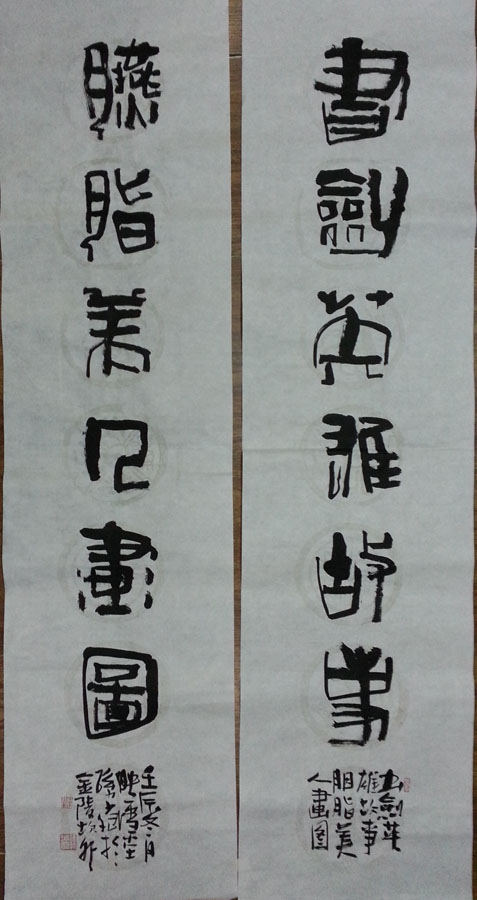 書劍英雄故事
书劍英
雄故事
胭脂美
人畫图
臙脂美人畫圖
壬辰冬月
映雪堂
金陵